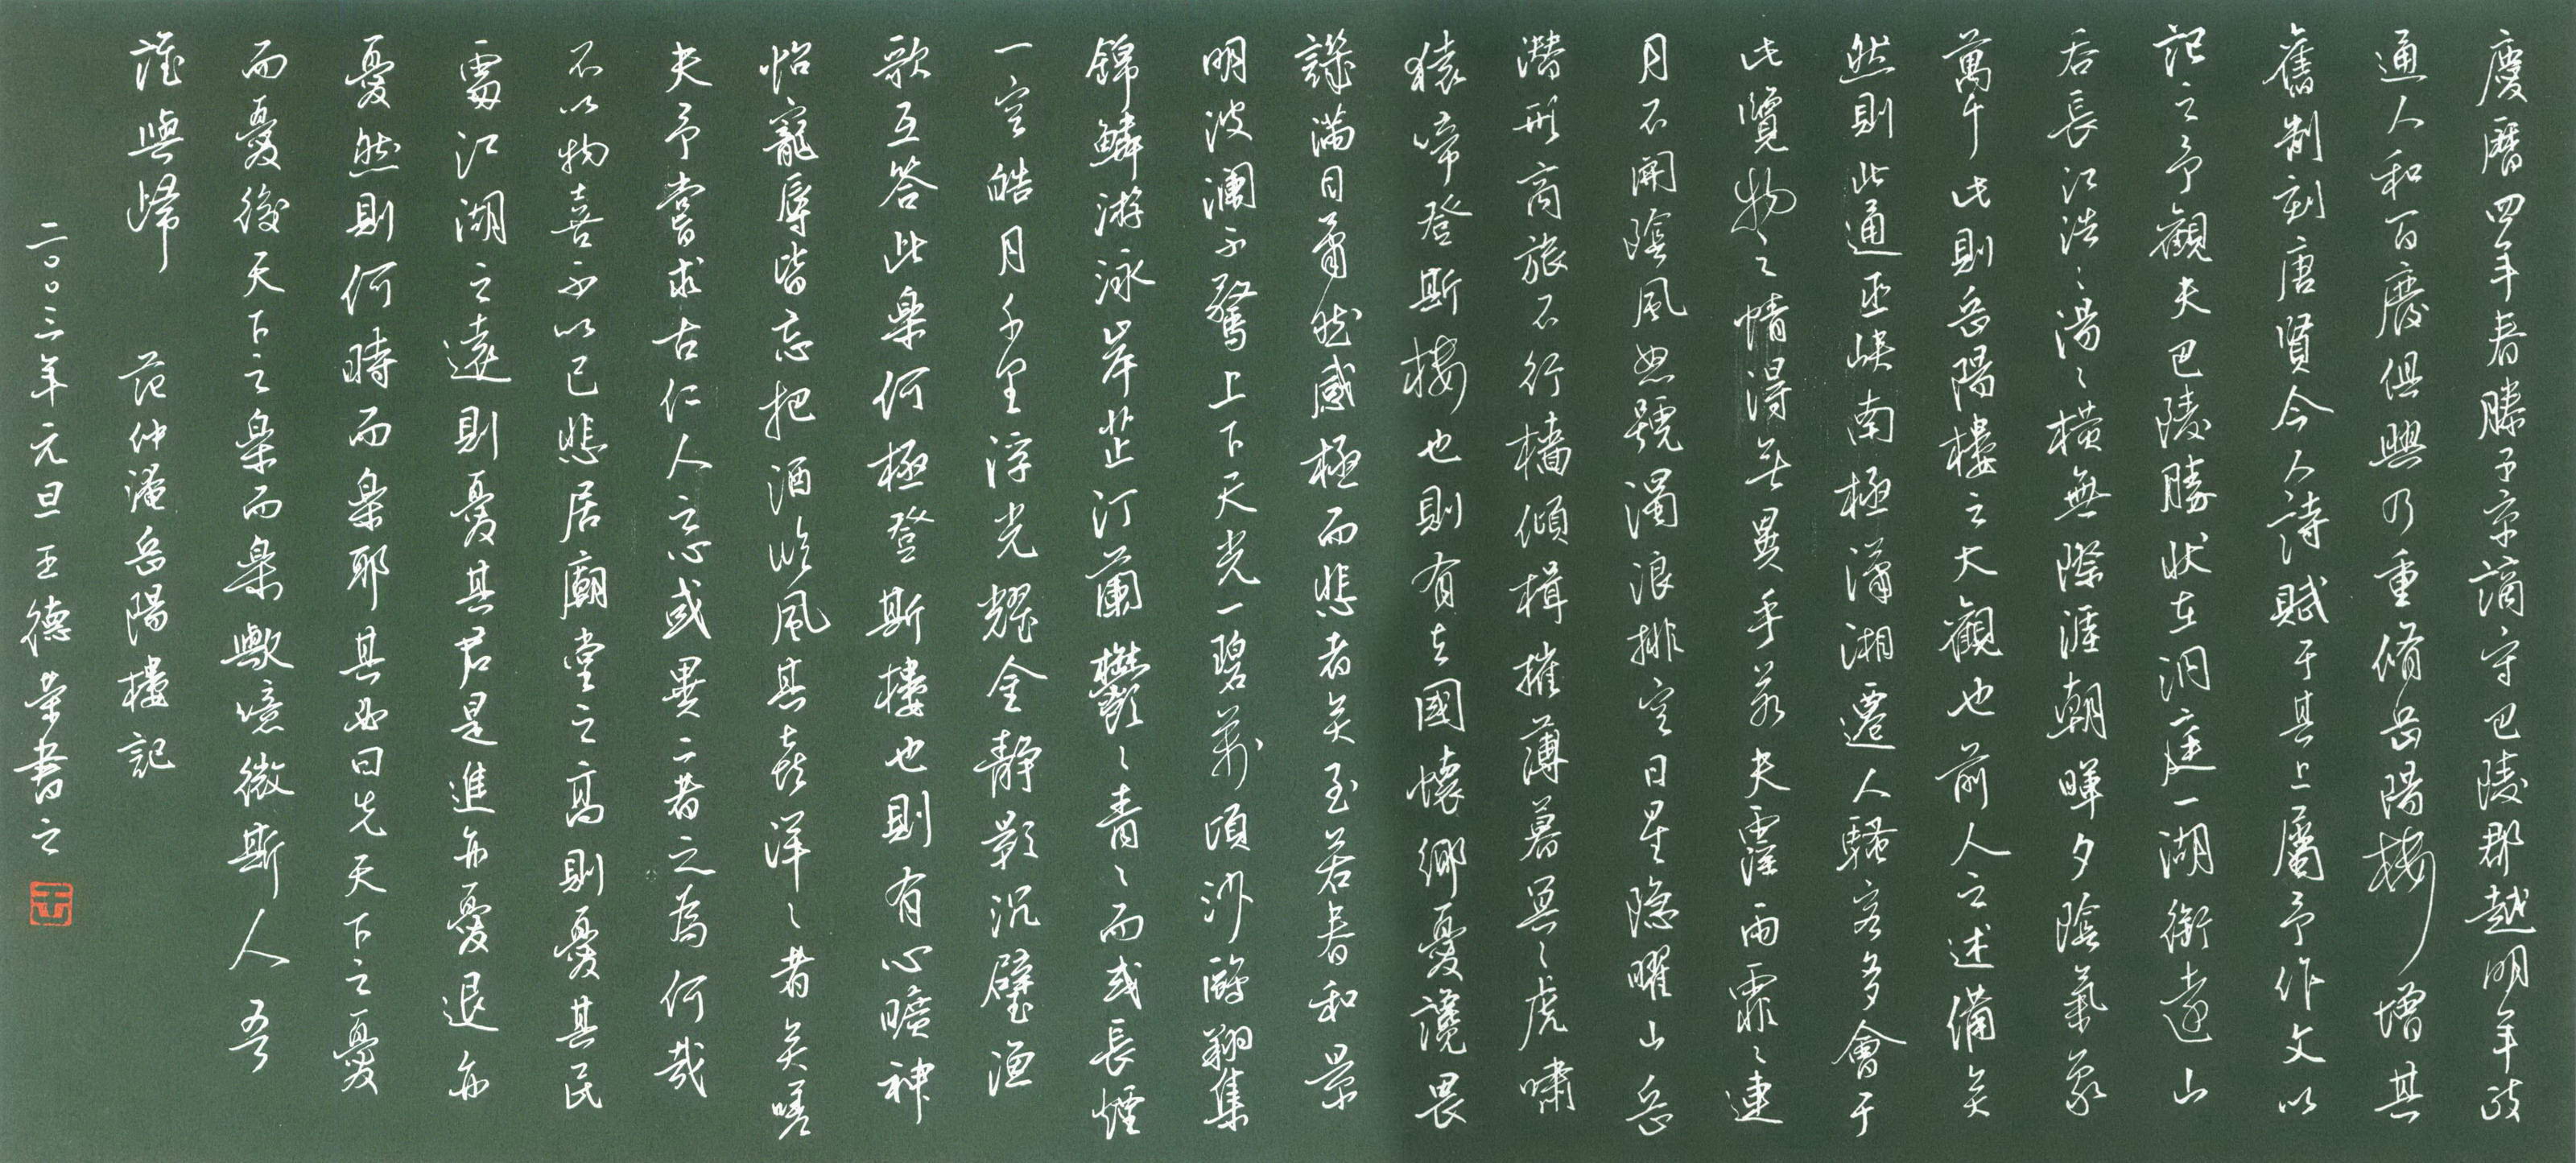 慶曆四年春滕子京謫守巴陵郡越明年政
通人和百廢俱興乃重脩岳陽樓增其
舊制刻唐賢今人詩賦于其上屬予作文以
記之予觀夫巴陵勝狀在洞庭一湖銜遠山
吞長江浩〻湯〻橫無際涯朝暉夕陰氣象
萬千此則岳陽樓之大觀也前人之述備矣
然則北通巫峽南極瀟湘遷人騷客多會于
此覽物之情得無異乎若夫霪雨霏〻連
月不開陰風怒號濁浪排空日星隱曜山岳
潛形商旅不行檣傾楫摧薄暮冥〻虎嘯
猿啼登斯樓也則有去國懷鄉憂讒畏
譏滿目蕭然感極而悲者矣至若春和景
明波瀾不驚上下天光一碧萬頃沙鷗翔集
錦鱗游泳岸芷汀蘭鬱〻青〻而或長煙
一空皓月千里浮光耀金靜影沉璧漁
歌互答此樂何極登斯樓也則有心曠神
怡寵辱皆忘把酒臨風其喜洋〻者矣嗟
夫予嘗求古仁人之心或異二者之為何哉
不以物喜不以己悲居廟堂之高則憂其民
處江湖之遠則憂其君是進亦憂退亦
憂然則何時而樂耶其必曰先天下之憂
而憂後天下之樂而樂歟噫微斯人吾
誰與歸 范仲淹岳陽樓記
二〇〇三年元旦王德榮書之
王